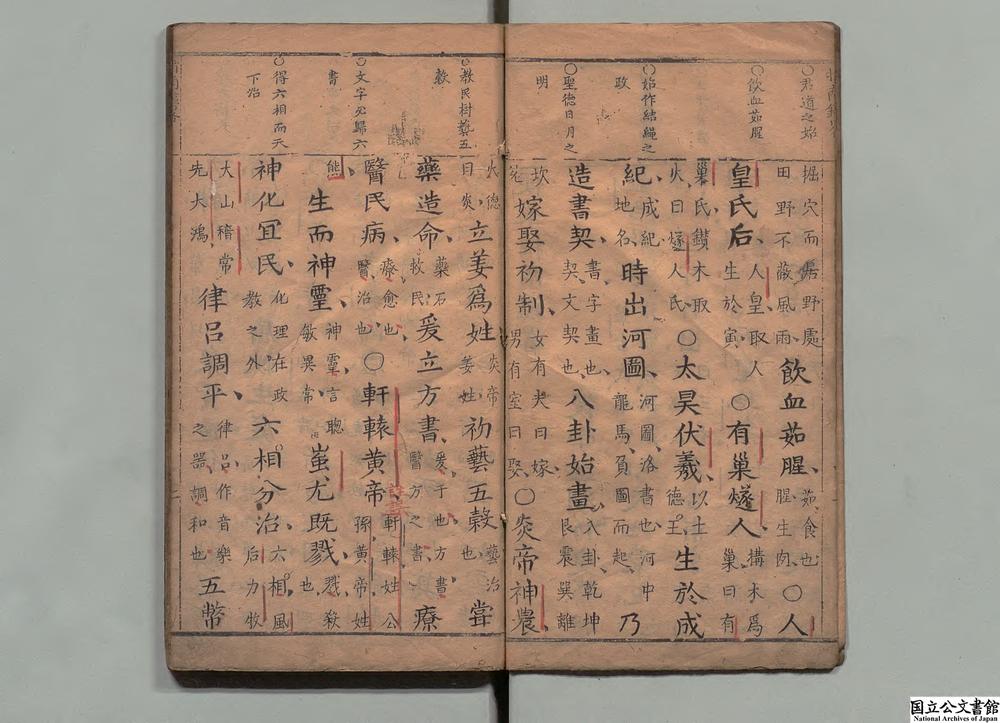 ○君道之始
○飲血茹腥
○始作結繩之
政
○聖德日月之
明
掘穴而居野處田野不蔽風雨飲血茹腥茹食也腥生肉○人
皇氏后人皇取人生於寅○有巢燧人構木爲巢曰有
巢氏鑚木取火曰燧人氏○太昊伏羲以土德王生於成
紀成紀地名時出河圖河圖洛書也河中龍馬負圖而起乃
造書契書字畫也契文契也八卦始畫八卦乾坤艮震巽離
坎兌嫁娶初制女有夫曰嫁男有室曰娶○炎帝神農
○教民樹藝五
穀
○文字必歸六
書
○得六相而天
下治
火德曰炎立姜爲姓炎帝姜姓初藝五穀藝治也嘗
藥造命藥石救民爰立方書爰于也方書醫方之書療
醫民病療愈也醫治也○軒轅黃帝軒轅姓公孫黃帝姓
熊生而神靈神靈言聰敏異常蚩尤既戮戮殺也
神化宜民化理在政教之外六相分治六相風后力牧
大山稽常先大鴻律呂調平律呂作音樂之器調和也五幣
国立公文書館
National Archives of Japan